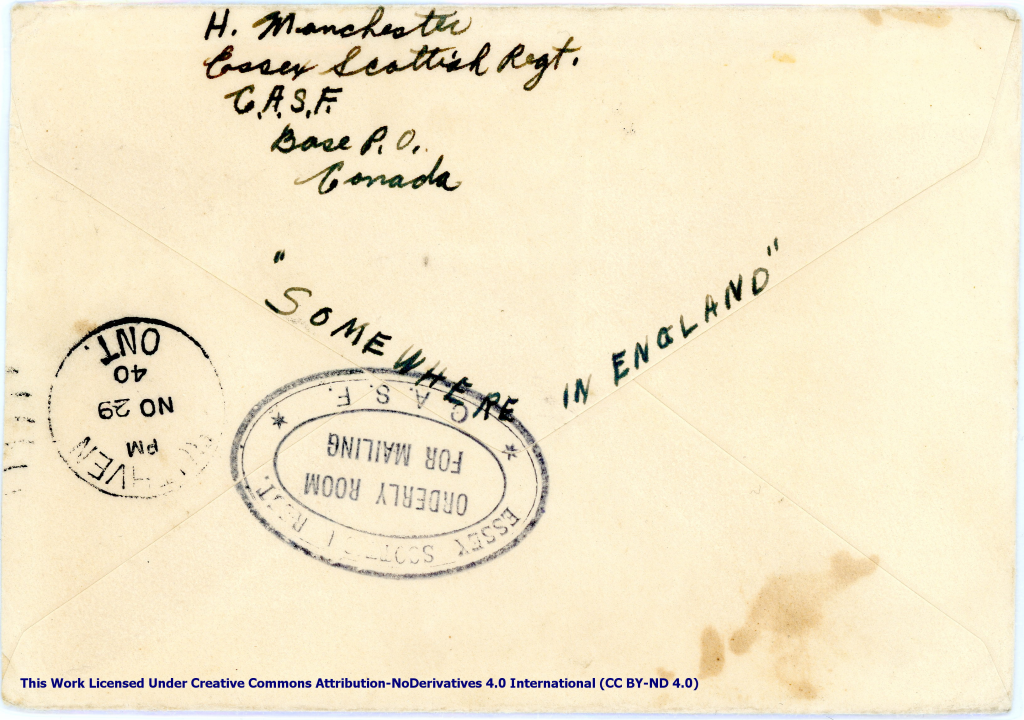 H. Manchester
Essex Scottish Regt.
C.A.S.F.
Base P.O.
Canada
"SOMEWHERE IN ENGLAND"
ONT.
40
NO 29
PM
C. A. S. F.
FOR MAILING
ORDERLY ROOM
ESSEX REGT.
This Work Licensed Under Creative Commons Attribution-NoDerivatives 4.0 International (CC BY-ND 4.0)